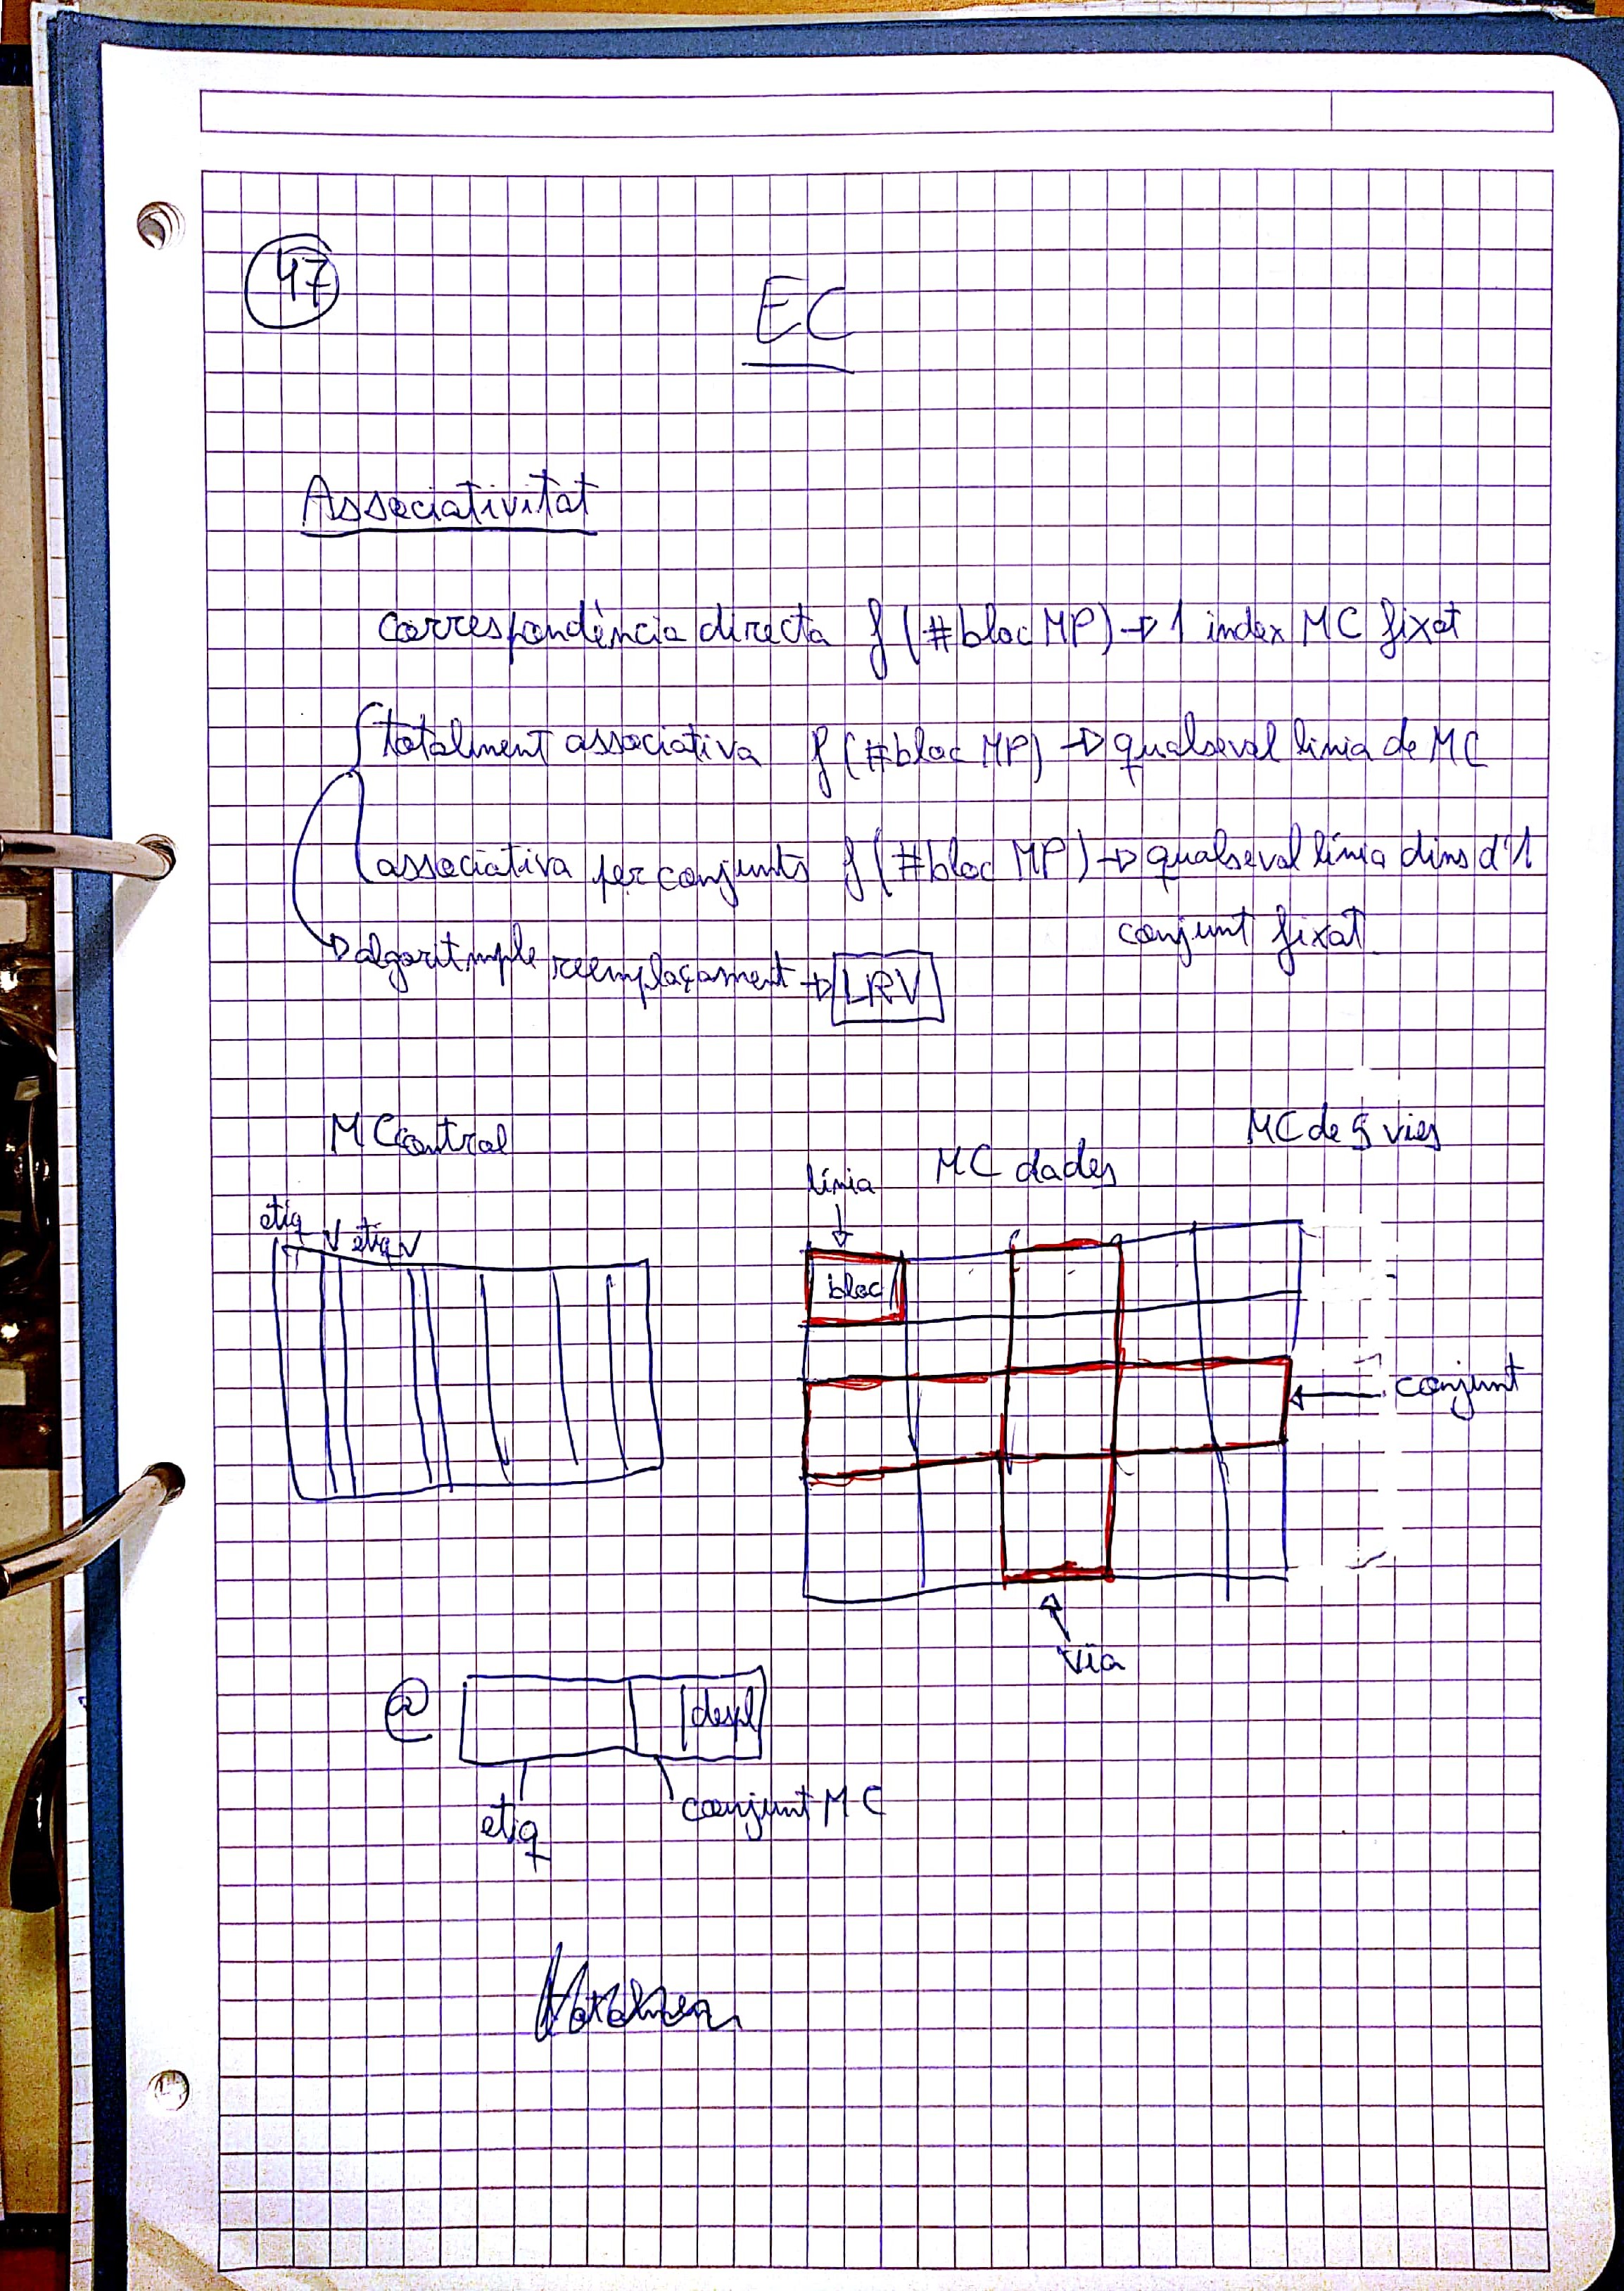 47
EC
Associativitat
correspondència directa f(#bloc MP) → 1 index MC fixat
totalment associativa f(#bloc MP) → qualseval linia de MC
associativa per conjunts f(#bloc MP) → qualseval línia dins d'1
conjunt fixat
→ algoritmple reemplaçament → LRV
MC control
MC dades
MC de 5 vies
línia
etiq v etiq v
bloc
← conjunt
via
@ despl
etiq
conjunt MC